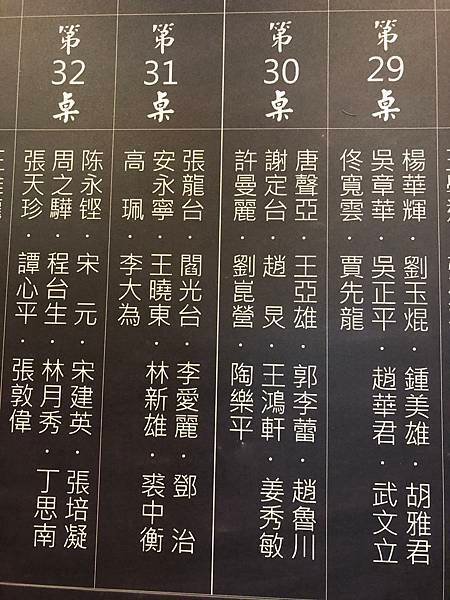 第29桌
楊華輝・劉玉焜・鍾美雄・胡雅君
吳章華・吳正平・趙華君・武文立
佟寬雲・賈先龍
第30桌
唐聲亞・王亞雄・郭李蕾・趙魯川
謝定台・趙　炅・王鴻軒・姜秀敏
許曼麗・劉崑營・陶樂平
第31桌
張龍台・閻光台・李愛麗・鄧　治
安永寧・王曉東・林新雄・裘中衡
高　珮・李大為
第32桌
陈永铿・宋　元・宋建英・張培凝
周之驊・程台生・林月秀・丁思南
張天珍・譚心平・張敦偉